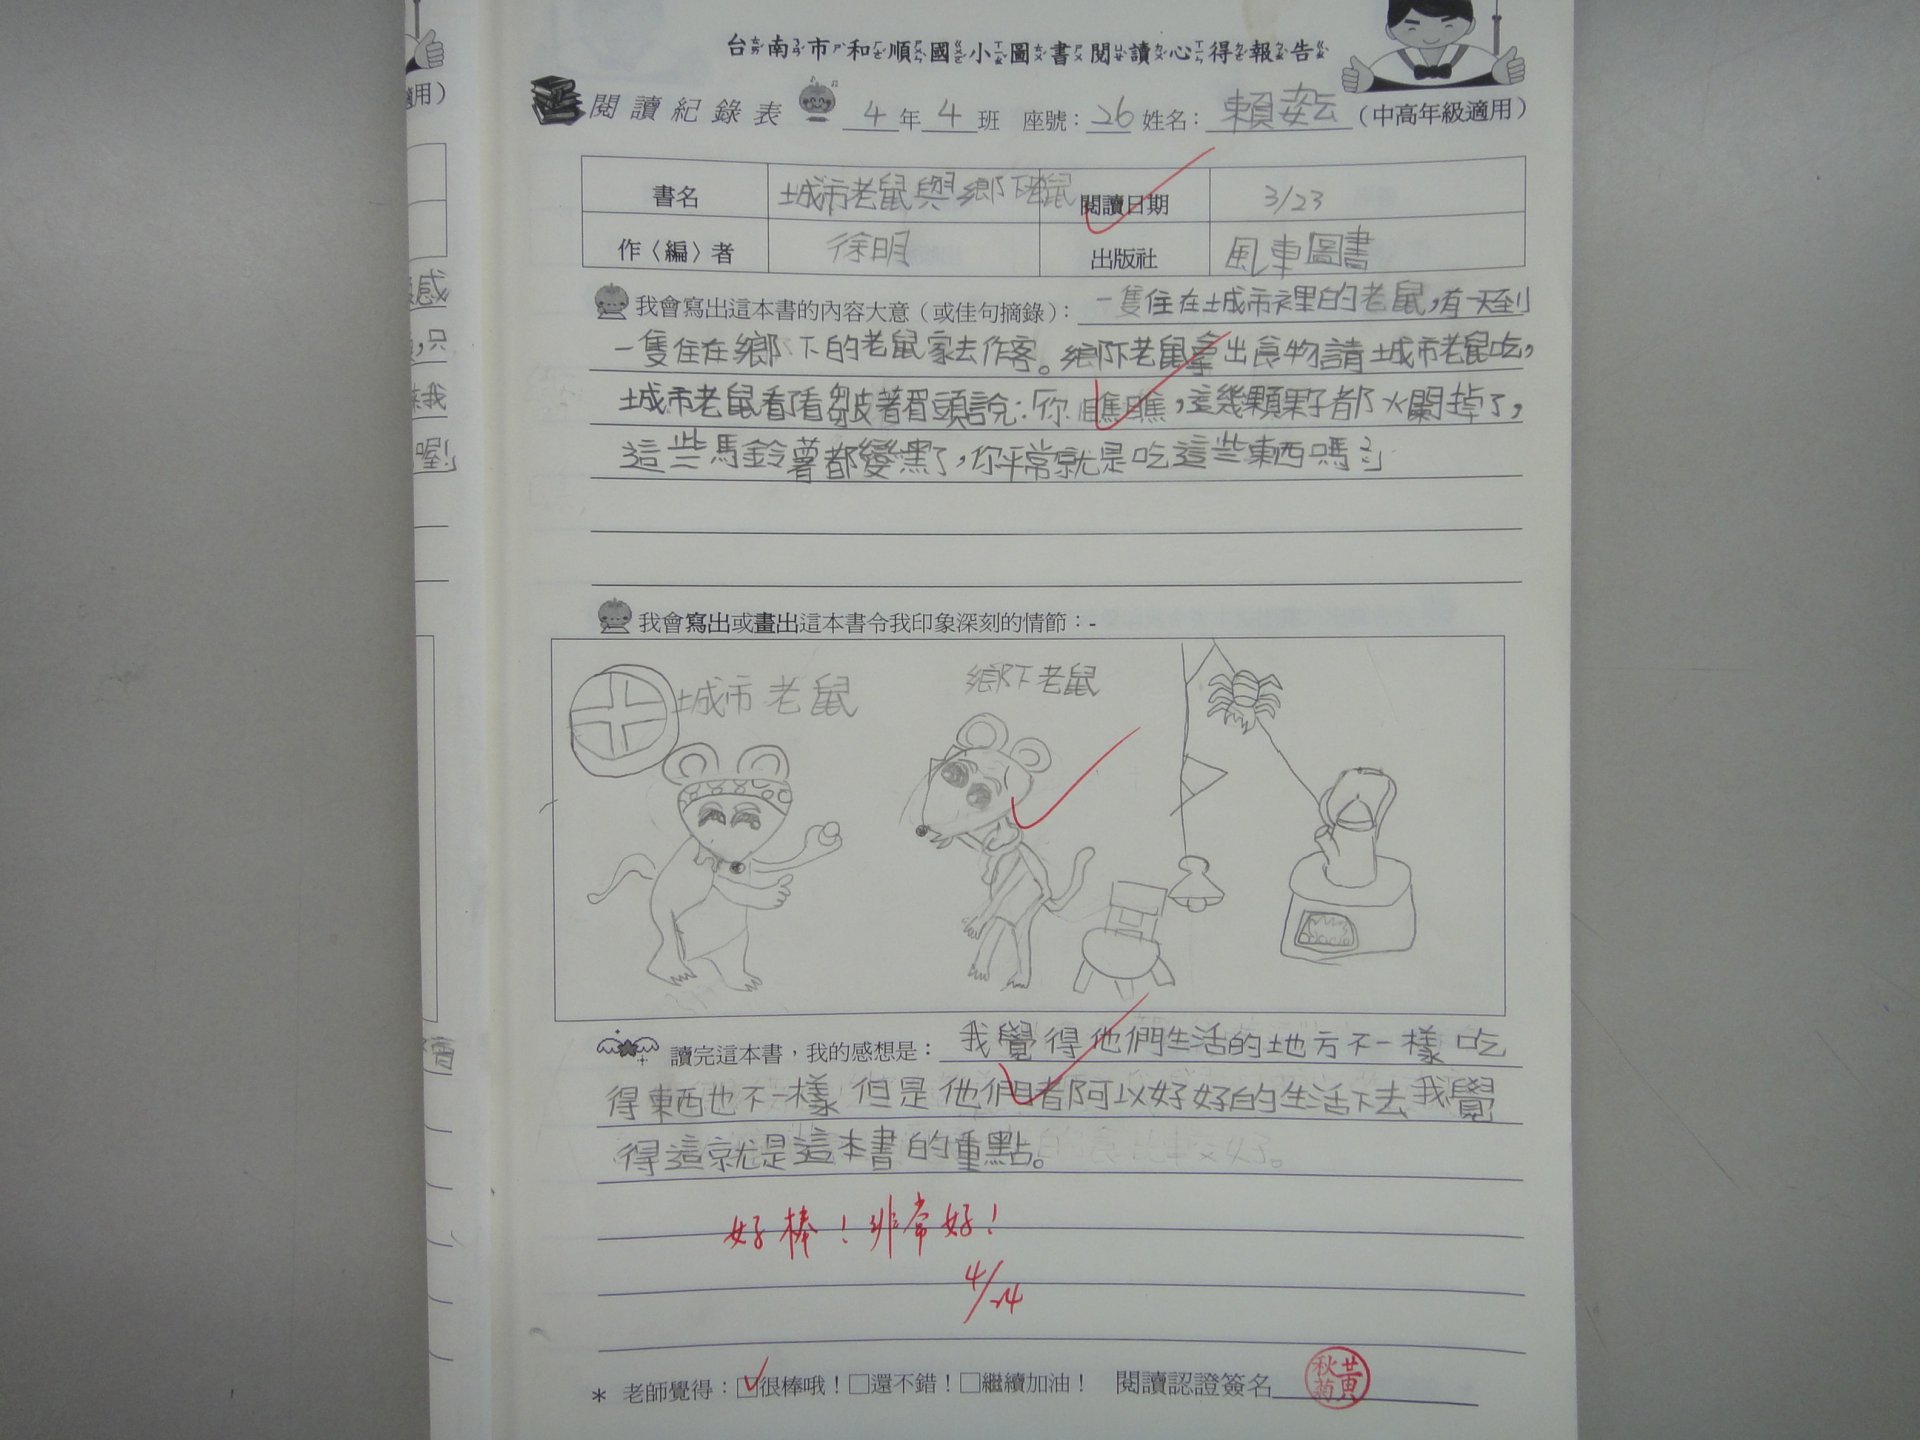 台南市和順國小圖書閱讀心得報告
閱讀紀錄表 4年4班 座號：26 姓名：賴 （中高年級適用）
書名 城市老鼠與鄉下老鼠 閱讀日期 3/23
作〈編〉者 徐明 出版社 風車圖書
我會寫出這本書的內容大意（或佳句摘錄）：一隻住在城市裡的老鼠，有一天到
一隻住在鄉下的老鼠家去作客。鄉下老鼠拿出食物請城市老鼠吃，
城市老鼠看了看皺著眉頭說：「你瞧瞧，這幾顆果子都火爛掉了，
這些馬鈴薯都變黑了，你平常就是吃這些東西嗎？」
我會寫出或畫出這本書令我印象深刻的情節：-
城市老鼠
鄉下老鼠
讀完這本書，我的感想是：我覺得他們生活的地方不一樣吃
得東西也不一樣 但是他們都可以好好的生活下去 我覺
得這就是這本書的重點。
好棒！非常好！
4/24
＊ 老師覺得：□很棒哦！□還不錯！□繼續加油！ 閱讀認證簽名
黃秋菊
適用）
感
，只
我
喔！